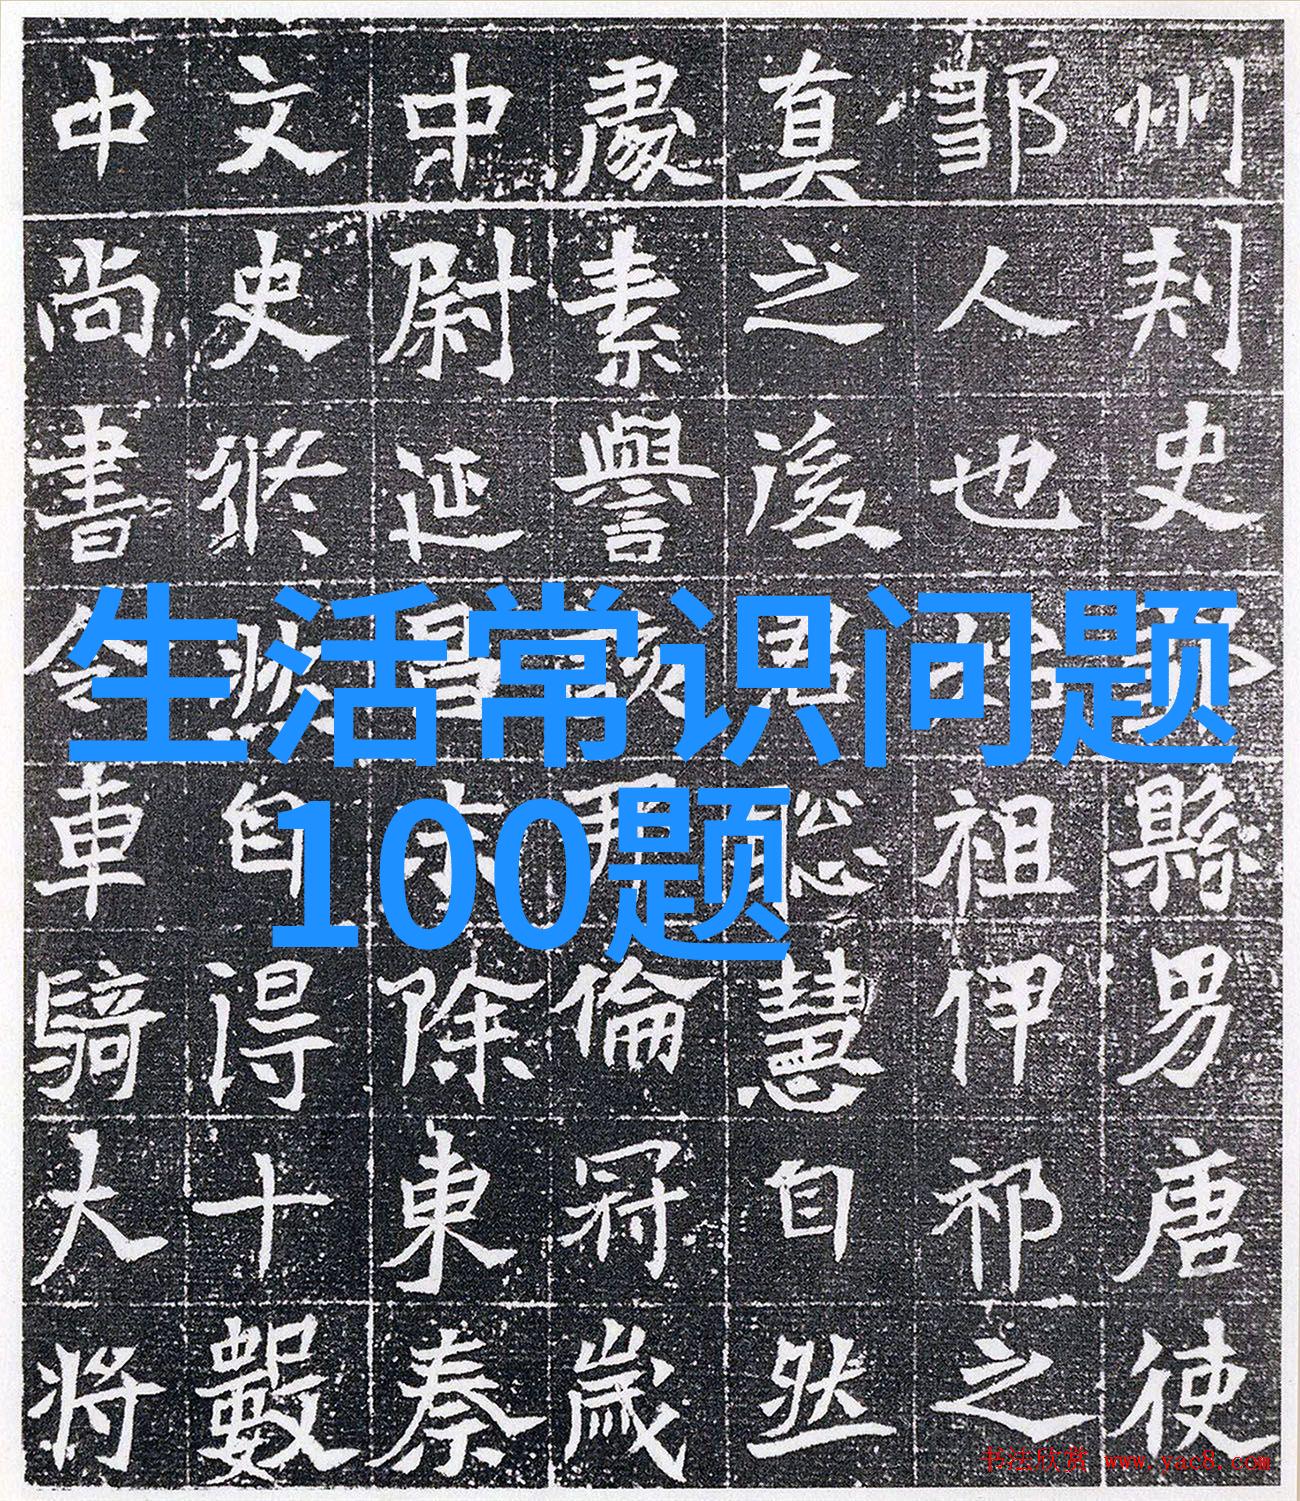 州刾史縣男唐使
鄒人也始祖伊祁之
真之後君聰慧自然
處素譽倫冠歲
中尉延昌末除東秦
文史條然自得十數
中尚書令車騎大將
生活常识问题
100题
书法欣赏 www.yac8.com